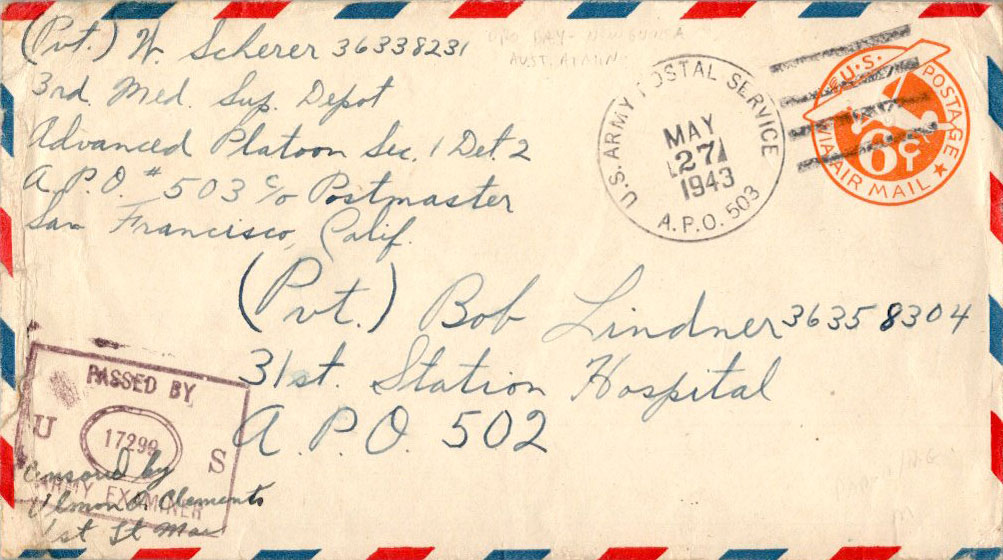 (Pvt.) W. Scherer 36338231
3rd. Med. Sup. Depot
Advanced Platoon Sec. 1 Det. 2
A.P.O. # 503 c/o Postmaster
San Francisco, Calif.
U.S. ARMY POSTAL SERVICE
MAY
27
1943
A.P.O. 503
U.S. POSTAGE
6¢
VIA AIR MAIL
(Pvt.) Bob Lindner 36358304
31st. Station Hospital
A.P.O. 502
PASSED BY
U 17299 S
ARMY EXAMINER
Censored by
Clements
1st Lt